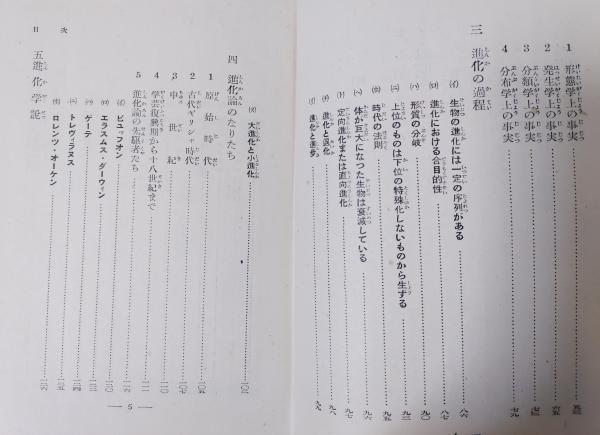 1 形態学上の事実
2 発生学上の事実
3 分類学上の事実
4 分布学上の事実 七九
三 進化の過程
(イ) 生物の進化には一定の序列がある 八六
(ロ) 進化における合目的性 八七
(ハ) 形質の分岐 九〇
(ニ) 上位のものは下位の特殊化しないものから生ずる
(ホ) 時代の法則
(ヘ) 体が巨大になつた生物は衰滅している 九六
(ト) 定向進化または直向進化 九七
(チ) 進化と退化 九八
(リ) 進化と進歩 九九
(ヌ) 大進化と小進化
四 進化論のなりたち
1 原始時代
2 古代ギリシャ時代
3 中世紀
4 学芸復興期から十八世紀まで
5 進化論の先駆者たち
(イ) ビュッフォン
(ロ) エラスムス・ダーウィン
(ハ) ゲーテ
(ニ) トレヴィラヌス
(ホ) ロレンツ・オーケン
五 進化学説
目次
― 5 ―